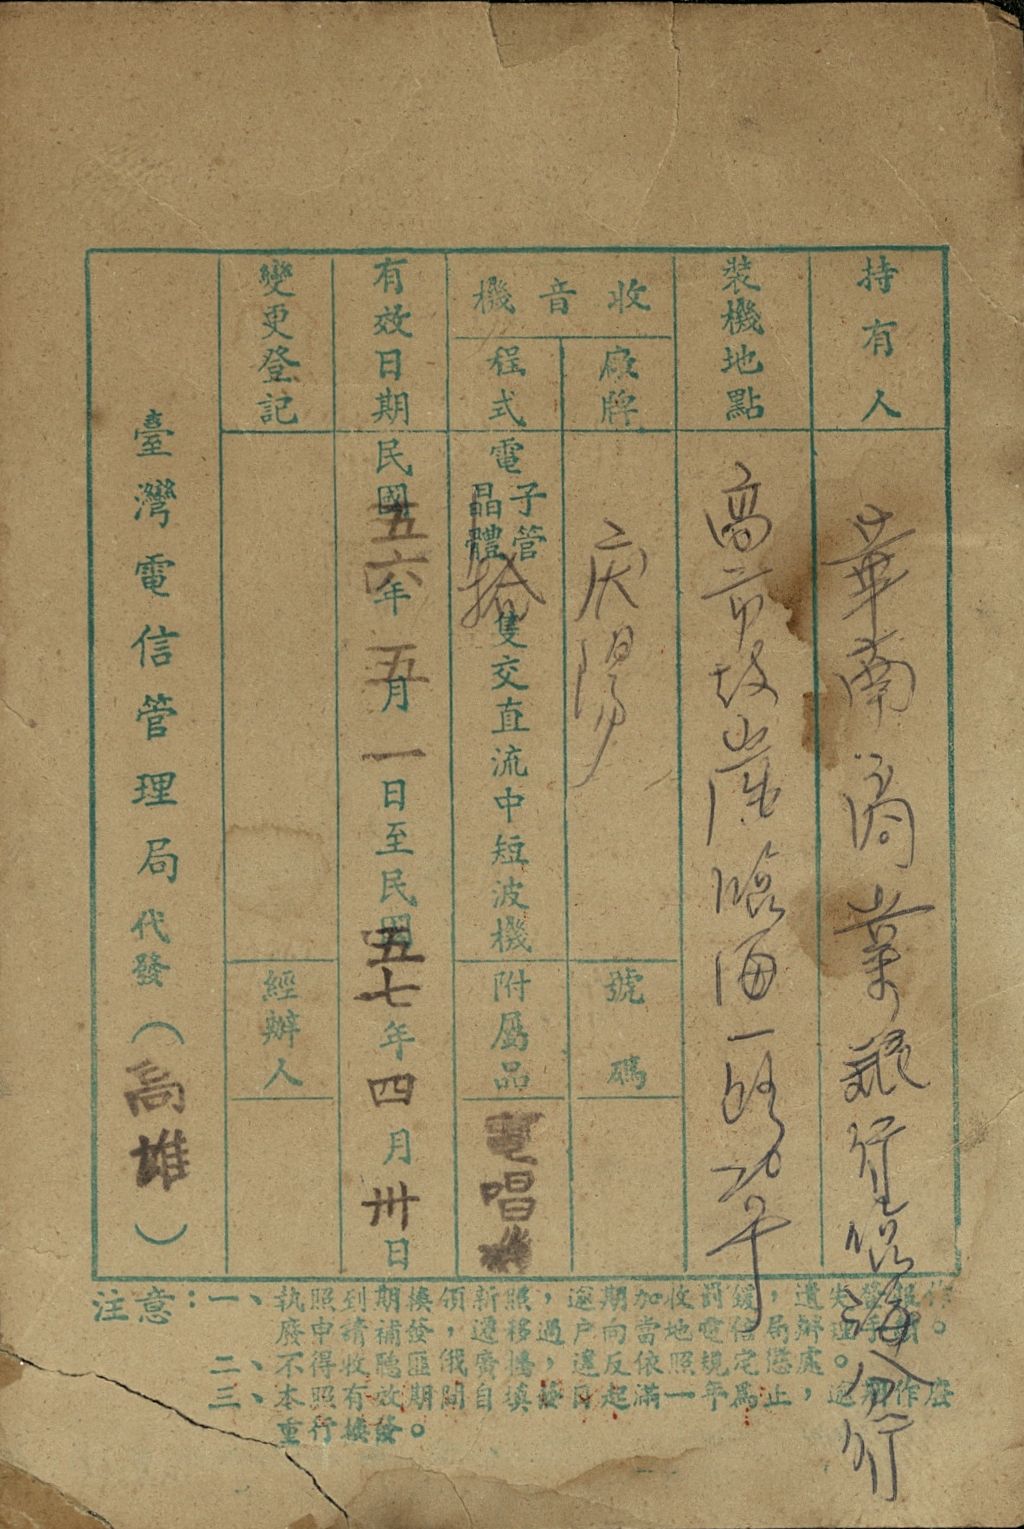 持有人
華南商業銀行臨海分行
裝機地點
高市鼓山區臨海一路
收音機
廠牌
慶陽
號碼
程式
電子管
晶體
拾隻交直流中短波機
附屬品
電唱
有效日期
民國五六年五月一日至民國五七年四月卅日
變更登記
經辦人
臺灣電信管理局代發（高雄）
注意：一、執照到期換領新照，逾期加收罰鍰，遺失登報作
廢申請補發，遷移過户向當地電信局辦理手續。
二、不得收聽匪俄廣播，違反依照規定懲處。
三、本照有效期間自填發日起滿一年爲止，逾期作廢
重行換發。